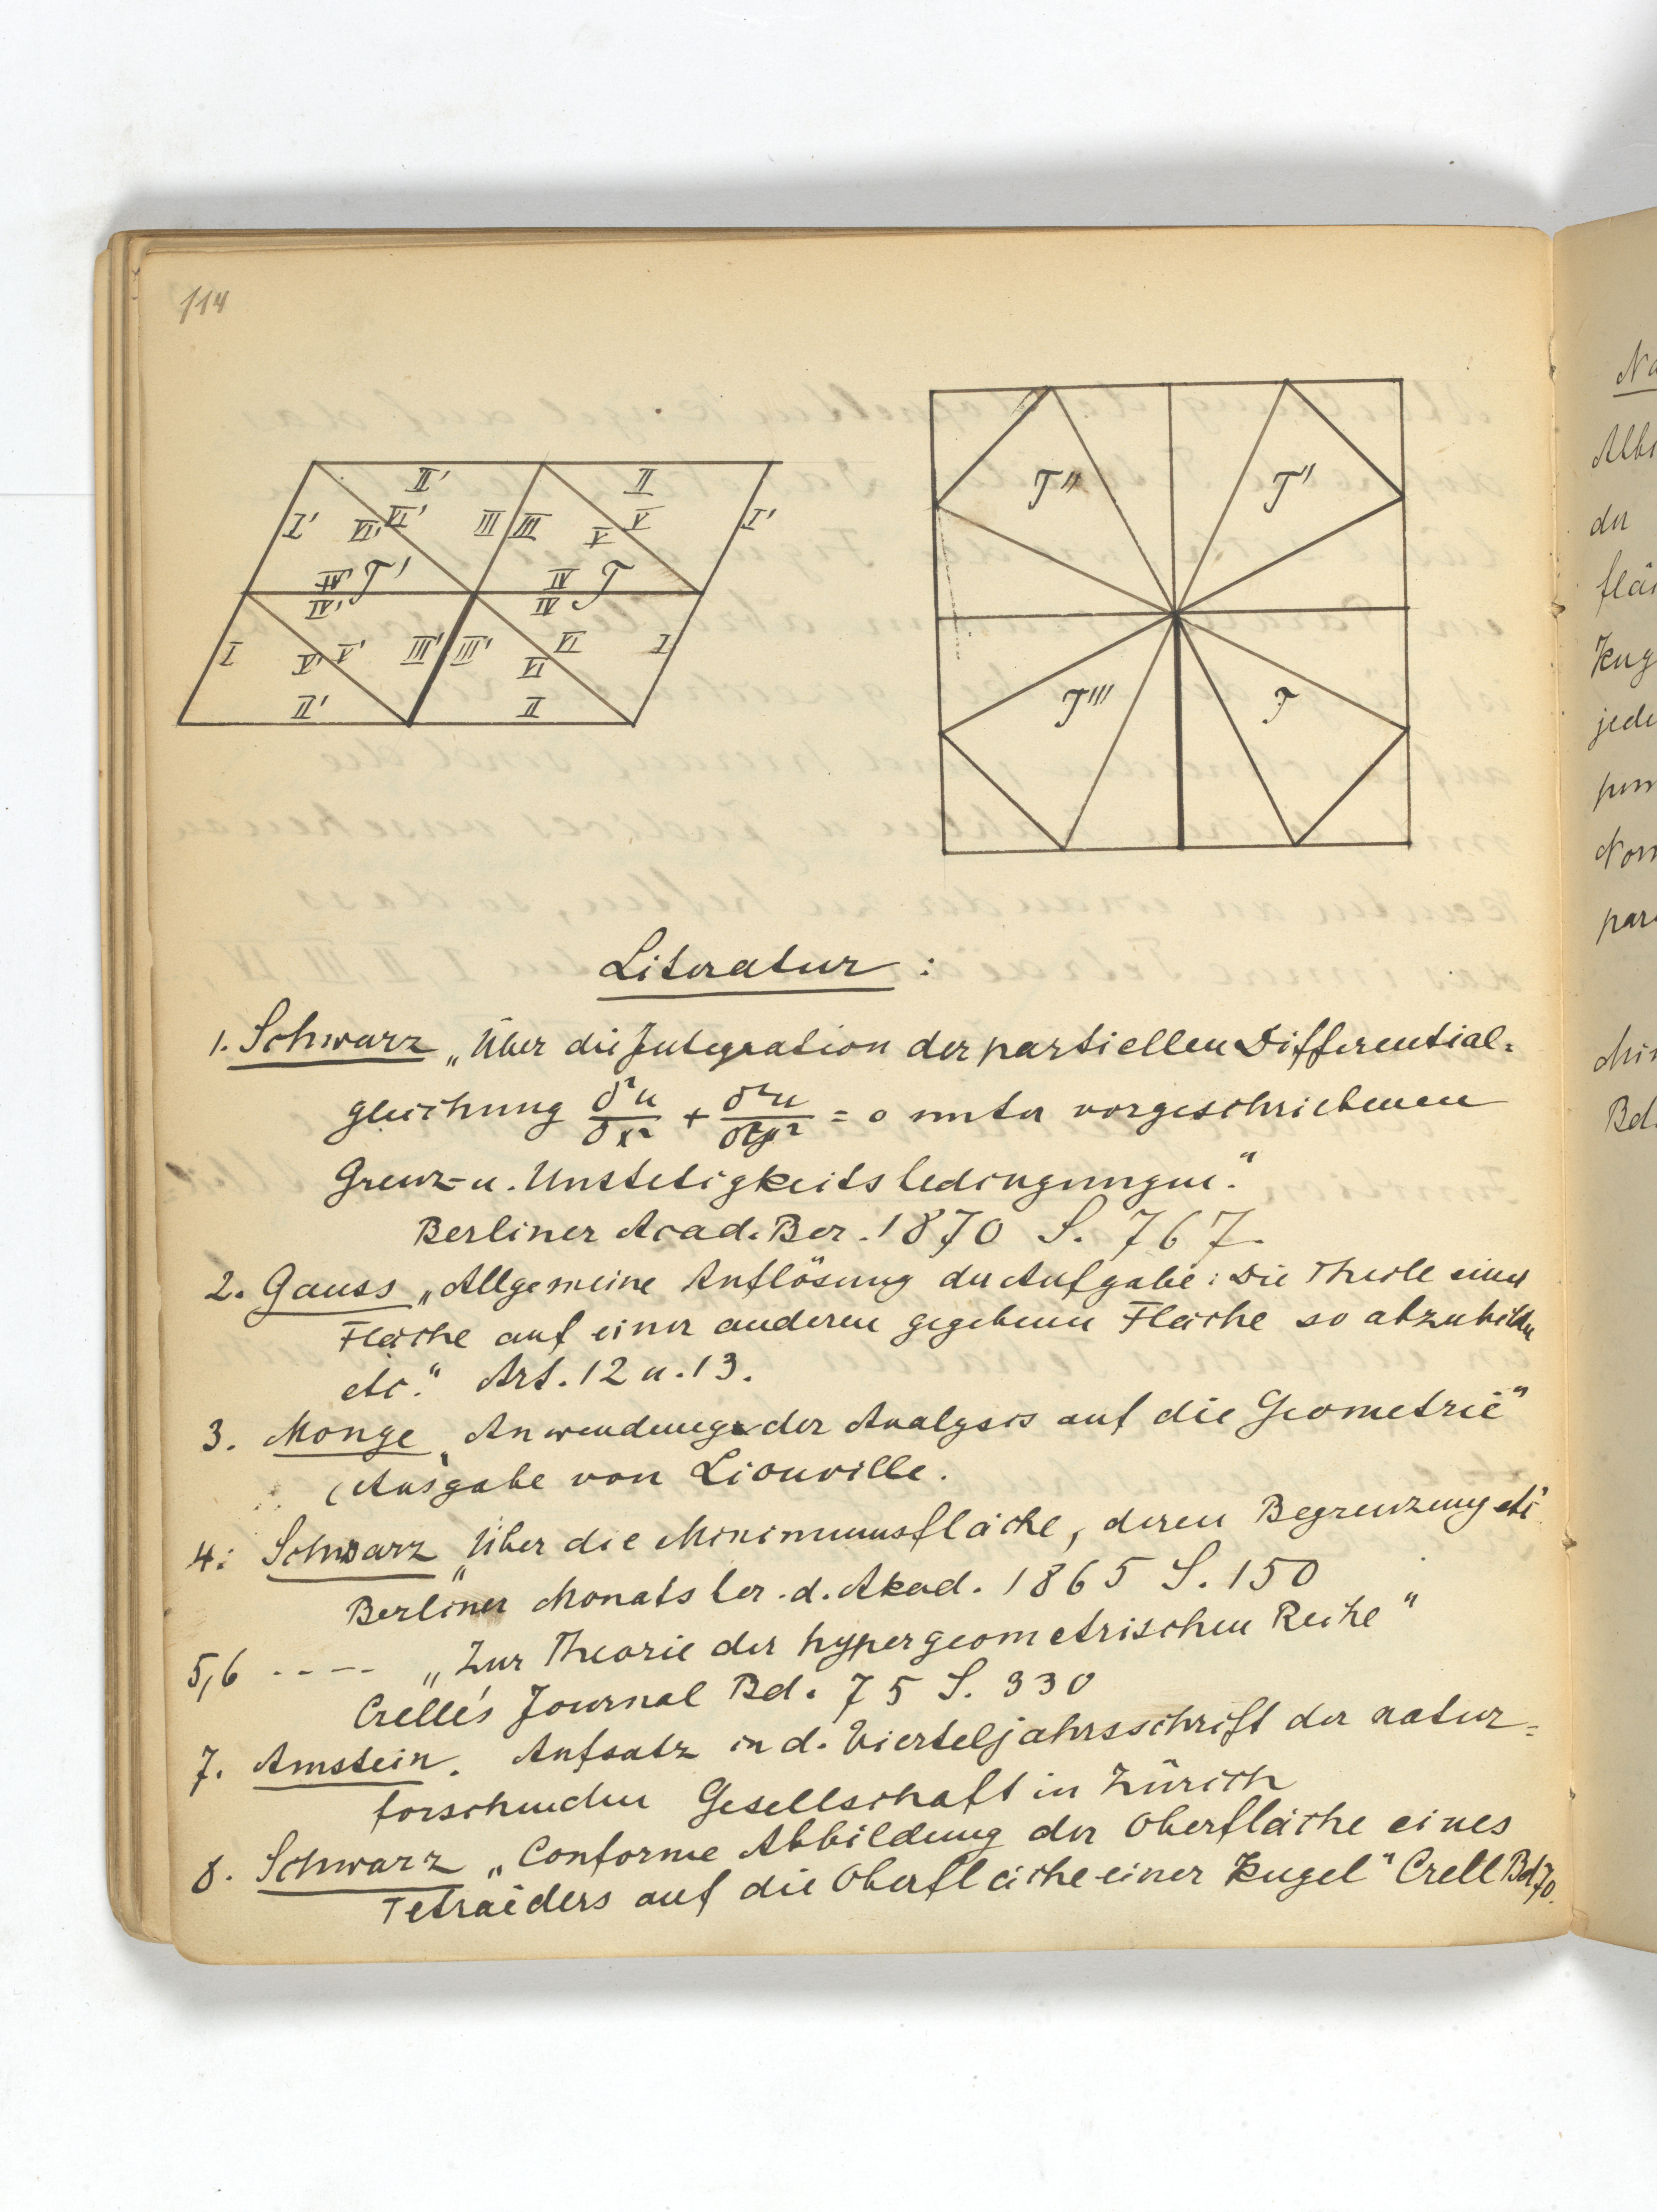 114
II' II
I' VI' VI' III III V V I'
IV' T' IV T
IV' IV
I V' V' III' III' VI VI I
II' II
T'' T'
T''' T
Literatur :
1. Schwarz „Über die Integration der partiellen Differential-
gleichung δ²u/δx² + δ²u/δy² = 0 unter vorgeschriebenen
Grenz- u. Unstetigkeitsbedingungen."
Berliner Acad. Ber. 1870 S. 767.
2. Gauss „Allgemeine Auflösung der Aufgabe: Die Theile einer
Fläche auf einer anderen gegebenen Fläche so abzubilden
etc." Art. 12 u. 13.
3. Monge „Anwendung der Analysis auf die Geometrie"
(Ausgabe von Liouville.
4. Schwarz „Über die Minimumsfläche, deren Begrenzung etc"
Berliner Monatsber. d. Akad. 1865 S. 150
5,6 ---- „Zur Theorie der hypergeometrischen Reihe"
Crelle's Journal Bd. 75 S. 330
7. Amstein. Aufsatz in d. Vierteljahrsschrift der natur-
forschenden Gesellschaft in Zürich
8. Schwarz „Conforme Abbildung der Oberfläche eines
Tetraëders auf die Oberfläche einer Kugel" Crell Bd 70.
Na
der
jede
Bd.